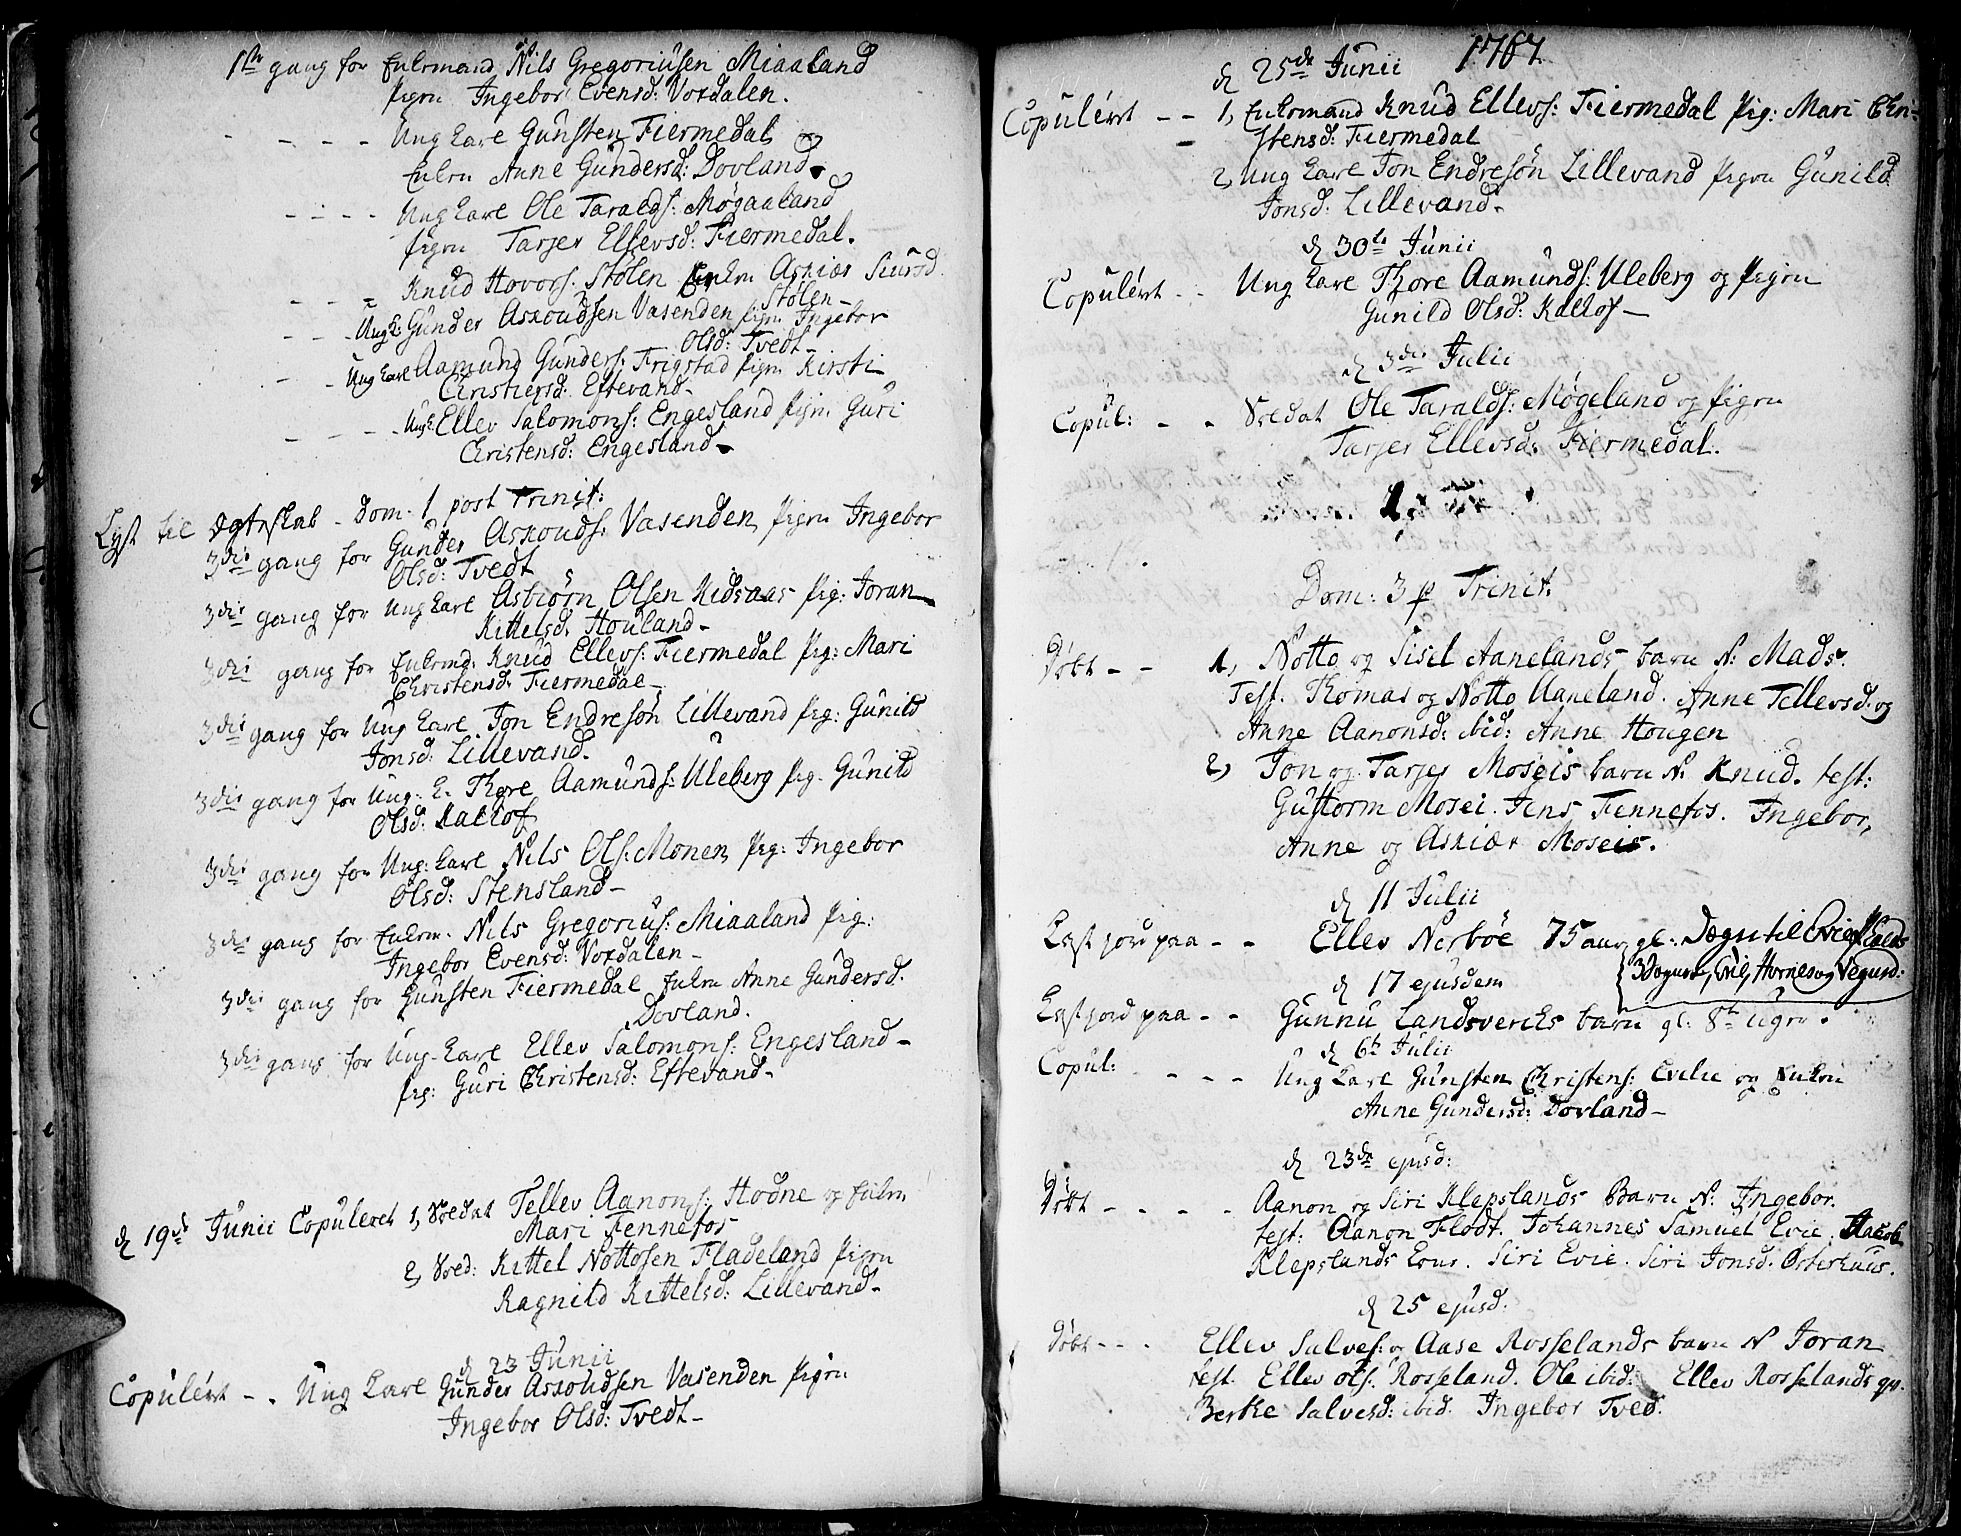 1ste gang for Enkemand Nils Gregoriusen Miaaland
Pigen Ingebor Evensd: Voxdalen.
- - - Ung Karl Gunsten Fiermedal
Enken Anne Gundersd: Dovland
- - - - Ung Karl Ole Taralds: Møgaaland
pigen Tarjer Ellevsd: Fiermedal.
- - - Knud Hovors: Stølen Enken Askier Siursd
Stølen
- - - Ung K: Gunder Asxoudsen Vasenden pigen Ingebor
Olsd: Tvedt
- - Ung Karl Aamund Gunders: Frigstad pigen Kirsti
Christensd: Eftevand
- - - - Ung K. Ellev Salomons: Engesland pigen Guri
Christensd: Engesland
Lyst til Ægteskab - Dom. 1 post Trinit:
3die gang for Gunder Asxouds: Vasenden, pigen Ingebor
Olsd: Tvedt
3die gang for Ung Karl Asbiörn Olsen Kidsaas Pig: Joran
Kittelsd: Houland
3die gang for Enkemd. Knud Ellevs: Fiermedal Pig: Mari
Christensd: Fiermedal
3die gang for Ung Karl Jon Endresön Lillevand pig: Gunild
Jonsd: Lillevand.
3die gang for Ung: K. Thore Aamunds: Uleberg pig: Gunild
Olsd: Kallof
3die gang for Ung: Karl Nils Ols: Monen, pig: Ingebor
Olsd: Stensland
3die gang for Enkem. Nils Gregorius: Miaaland pig:
Ingebor Evensd: Voxdalen
3die gang for Gunsten Fiermedal Enken Anne Gundersd.
Dovland.
3die gang for Ung-Karl Ellev Salomons: Engesland
pig: Guri Christensd: Eftevand
d 19de Junii Copuleret 1, Soldat Tellev Aanons: Hodne og Enken
Mari Fennefos
2, Sold: Kittel Nottosen Fladeland pigen
Ragnild Kittelsd: Lillevand
d 23 Junii
Copuleret - - Ung Karl Gunder Asxoudsen Vasenden pigen
Ingebor Olsd: Tvedt
1787
d 25de Junii
Copuleret - - 1, Enkemand Knud Ellevs: Fiermedal Pig: Mari Chri-
stensd: Fiermedal
2, Ung Karl Jon Endresön Lillevand pigen Gunild
Jonsd: Lillevand
d 30te Junii
Copuleret - - Ung Karl Thore Aamunds: Uleberg og pigen
Gunild Olsd: Kallof
d 3die Julii
Copul: - - Soldat Ole Taralds: Møgeland og pigen
Tarjer Ellevsd: Fiermedal.
Dom: 3 p Trinit.
Døbt - - 1, Notto og Sisel Aanelands barn N: Mads.
Test. Thomas og Notto Aaneland. Anne Tellevsd. og
Anne Aanonsd: ibid: Anne Hougen
2, Jon og Tarjer Moseis barn N: Knud. test:
Guttorm Mosei. Jens Fennefos. Ingebor,
Anne og Askier Moseis.
d 11 Julii
Kast jord paa - - Ellev Nerböe 75 aar gl: Degn til Evie
3 Sogne, Evie, Hornes og Vegusd:
d 17 ejusdem
Kast jord paa - - Gunnu Landsvercks barn gl: 8te Uger.
d 6te Julii
Copul: - - - Ung Karl Gunsten Christens: Evilie og Enken
Anne Gundersd: Dovland
d 23de ejusd:
Døbt - - - - Aanon og Siri Klepslands Barn N: Ingebor.
test: Aanon Flodt. Johannes Samuel Evie. Jacob
Klepslands Kone. Siri Evie. Siri Jonsd. Østerhuus.
d 25 ejusd:
Døbt - - - Ellev Salves: og Aase Rosselands barn N Joran
test. Ellev Ols. Rosseland. Ole ibid: Ellev Rosselands qv.
Berthe Salvesd: ibid. Ingebor Tved.